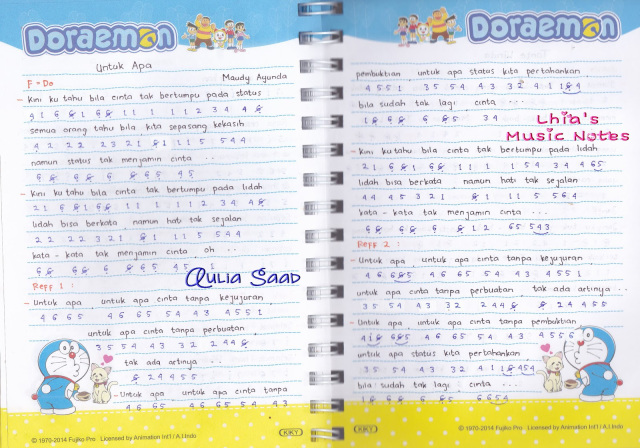 Doraemon
Untuk Apa
F = Do
Maudy Ayunda
- Kini ku tahu bila cinta tak bertumpu pada status
semua orang tahu bila kita sepasang kekasih
4 2 2 2 2 3 2 1 6 1 1 5 5 4 4
namun status tak menjamin cinta ..
- Kini ku tahu bila cinta tak bertumpu pada lidah
lidah bisa berkata namun hati tak sejalan
2 2 2 2 3 2 1 6 1 1 5 5 4 4
kata - kata tak menjamin cinta oh ...
Reff 1 :
- Untuk apa untuk apa cinta tanpa kejujuran
4 6 6 5 4 6 6 5 5 4 4 3 4 5 5 1
untuk apa cinta tanpa perbuatan
3 5 5 4 4 3 3 2 2 4 4 6
tak ada artinya ...
6 2 4 4 5 5
- Untuk apa untuk apa cinta tanpa
4 6 6 5 4 6 6 5 6 6 5 4
Aulia Saad
© 1970-2014 Fujiko Pro Licensed by Animation Int'l / A.I.Indo
KKY
Doraemon
pembuktian untuk apa status kita pertahankan
4 5 5 1 3 5 5 4 4 3 3 2 4 1 1 6 4
bila sudah tak lagi cinta ...
Lhia's
Music Notes
- Kini ku tahu bila cinta tak bertumpu pada lidah
lidah bisa berkata namun hati tak sejalan
4 4 4 5 3 2 1 6 1 1 5 5 6 4
kata - kata tak menjamin cinta ...
6 6 6 6 6 1 2 6 5 5 4 3
Reff 2 :
- Untuk apa untuk apa cinta tanpa kejujuran
4 6 6 6 5 4 6 6 5 5 4 4 3 4 5 5 1
untuk apa cinta tanpa perbuatan tak ada artinya ..
3 5 5 4 4 3 3 2 2 4 4 6 6 2 4 4 5 5
- Untuk apa untuk apa cinta tanpa pembuktian
untuk apa status kita pertahankan
3 5 5 4 4 3 3 2 4 1 1 6 4 5 4
bila sudah tak lagi cinta ...
KKY
© 1970-2014 Fujiko Pro Licensed by Animation Int'l / A.I.Indo